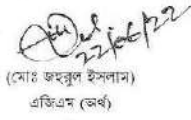 22/06/22
(মোঃ জহরুল ইসলাম)
এজিএম (অর্থ)